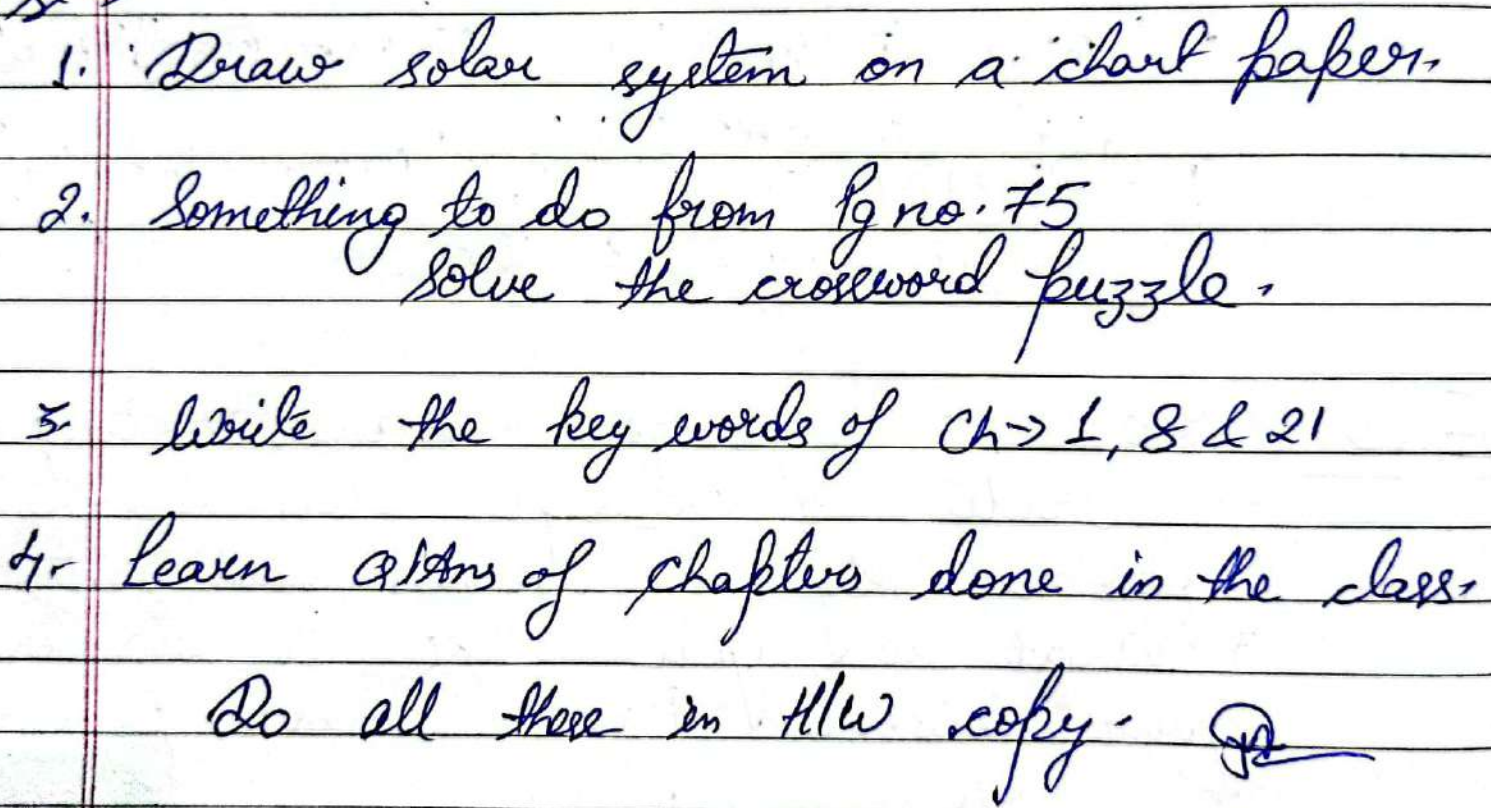 1. Draw solar system on a chart paper.
2. Something to do from Pg no. 75
Solve the crossword puzzle.
3. Write the key words of Ch→ 1, 8 & 21
4. Learn Q/Ans of chapters done in the class.
Do all these in H/W copy.